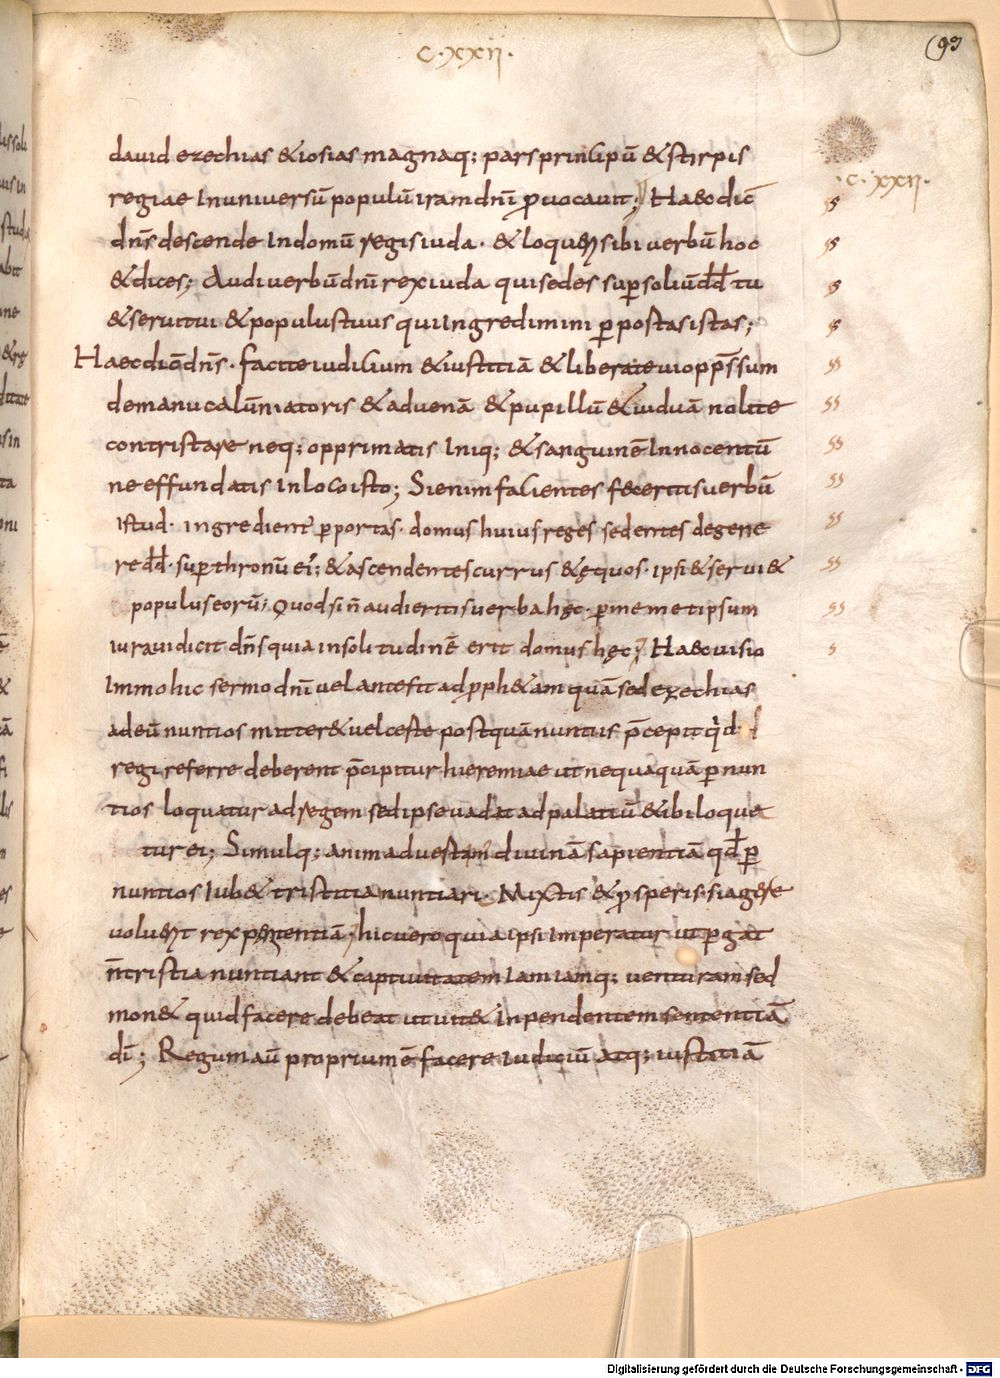 C·XXII·
93
david ezechias &iosias magnaq; pars principū &stirpis
regiae Inuniuersū populū iram dn̄i ꝓuocauit; Haec dic̄
·c·xxii·
dn̄s descende Indomū regis iuda · &loqueris ibi uerbū hoc
&dices; Audi uerbū dn̄i rex iuda qui sedes suꝑ soliū dd̄ tu
&serui tui &populus tuus qui Ingredimini ꝑ portas istas;
Haec dic̄ dn̄s · facite iudicium &iustitiā &liberate ui opp̄ssum
demanu calūniatoris &aduenā &pupillū &uiduā nolite
contristare neq; opprimatis Iniq; &sanguinē Innocentū
ne effundatis Inloco isto; Si enim facientes feceritis uerbū
istud · ingredient̄ ꝑ portas · domus huius reges sedentes degene
re dd̄ · suꝑ thronū ei'; &ascendentes currus &ęquos · ipsi &serui &
populus eorū; Quod si n̄ audieritis uerba hęc · ꝑ me met ipsum
iuraui dicit dn̄s quia insolitudinē erit domus hęc; Haec uisio
Immo hic sermo dn̄i uel ante fit ad ꝓph&am quā sed ezechias
ad eū nuntios mitter& uel certe postquā nuntiis p̄cepit q̄d
regi referre deberent p̄cipitur hieremiae ut nequaquā ꝑ nun
tios loquatur ad regem sed ipse uadat ad palatiū &ibi loqua
tur ei; Simulq; animaduertam' diuinā sapientiā qd̄ ꝑ
nuntios Iub& tristitia nuntiari · Mixtis &ꝓsperis si agere
voluerit rex penitentiā; hic uero quia ipsi Imperatur ut ꝑgat
n̄ tristia nuntiant &captiuitatem Iam iamq; uenturam sed
mon& quid facere debeat ut uit& Inpendentem sententiā
dī; Regum aū proprium ē facere iudiciū atq; iustitiā
Digitalisierung gefördert durch die Deutsche Forschungsgemeinschaft - DFG